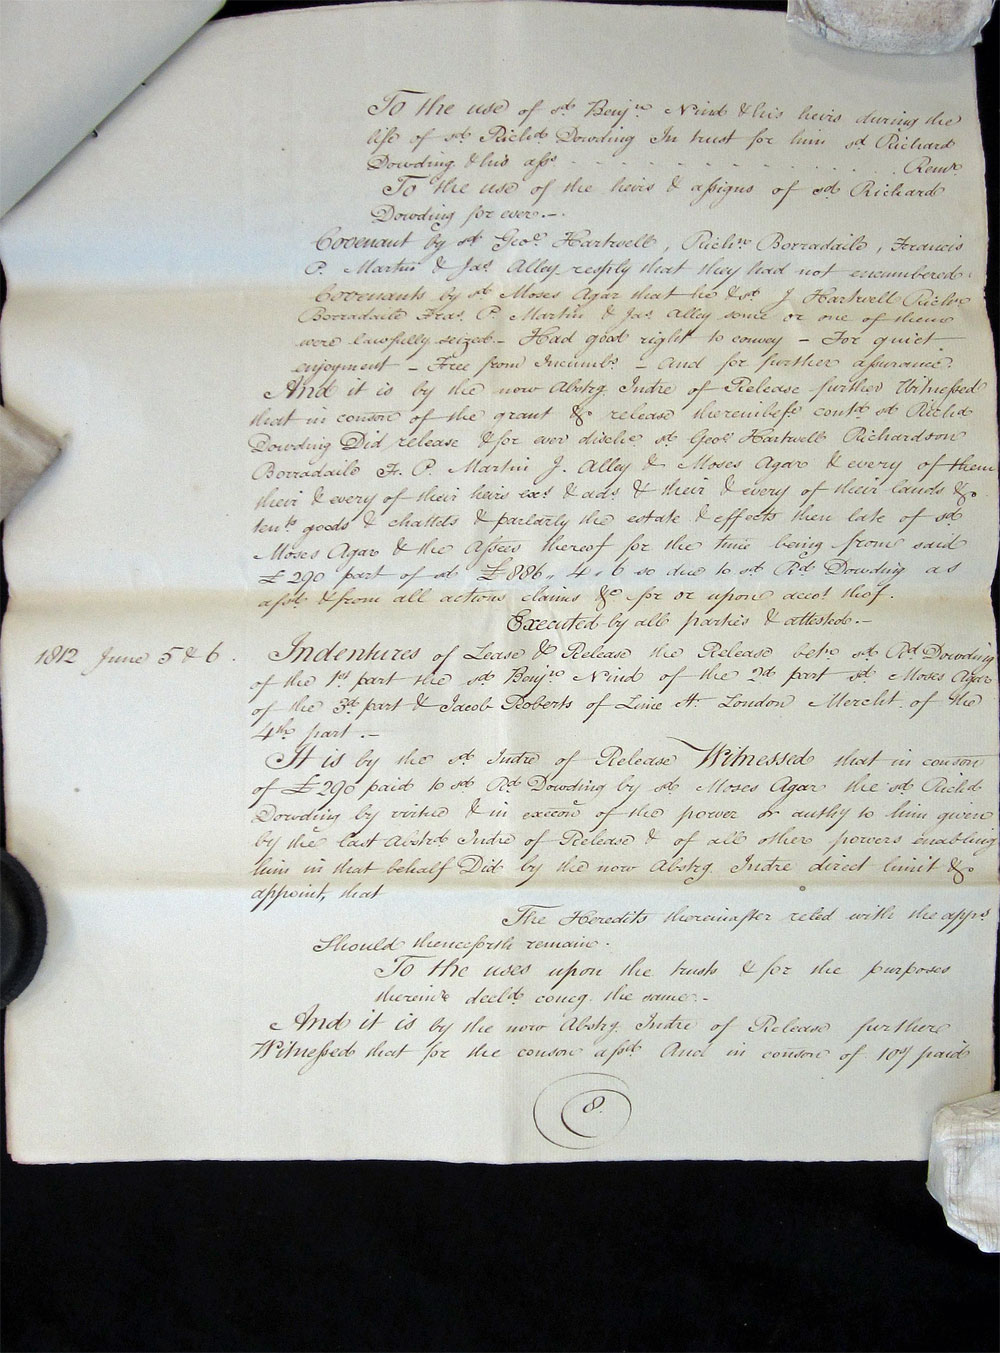 To the use of sd. Benjn. Nind & his heirs during the
life of sd. Richd. Dowding In trust for him sd. Richard
Dowding & his asss. . . . . . . . . . . . . . . Remr.
To the use of the heirs & assigns of sd. Richard
Dowding for ever.–
Covenant by sd. Geoe. Hartwell, Richn. Borradaile, Francis
P. Martin & Jas. Alley resply that they had not encumbered.
Covenants by sd. Moses Agar that he & sd. J Hartwell Richn.
Borradaile Fras. P. Martin & Jas. Alley some or one of them
were lawfully seized – Had good right to convey – For quiet
enjoyment – Free from Incumbs. – And for further assurance.
And it is by the now Abstrg. Indre of Release further Witnessed
that in conson of the grant & release thereinbefe. contd. sd. Richd.
Dowding Did release & for ever dische. sd. Geoe. Hartwell Richardson
Borradaile F. P. Martin J. Alley & Moses Agar & every of them
their & every of their heirs exs. & ads. & their & every of their lands &c
tents. goods & chattels & parlarly the estate & effects then late of sd.
Moses Agar & the Assees thereof for the time being from said
£290 part of sd. £886,, 4,, 6 so due to sd. Rd. Dowding as
afsd. & from all actions claims &c for or upon accot. thof.
Executed by all parties & attested.–
1812 June 5 & 6. Indentures of Lease & Release the Release betn. sd. Rd. Dowding
of the 1st. part the sd. Benjn. Nind of the 2d. part sd. Moses Agar
of the 3d. part & Jacob Roberts of Lime St. London Mercht. of the
4th. part.–
It is by the sd. Indre of Release Witnessed that in conson
of £290 paid to sd. Rd. Dowding by sd. Moses Agar the sd. Richd.
Dowding by virtue & in execcon of the power or authy to him given
by the last Abstrd. Indre of Release & of all other powers enabling
him in that behalf Did by the now Abstrg. Indre direct limit &
appoint, that
The Heredits thereinafter reled with the apps.
Should thenceforth remain.
To the uses upon the trusts & for the purposes
thereinr. decld. concg. the same.–
And it is by the now Abstrg. Indre of Release further
Witnessed that for the conson afsd. And in conson of 10s/ paid
8.